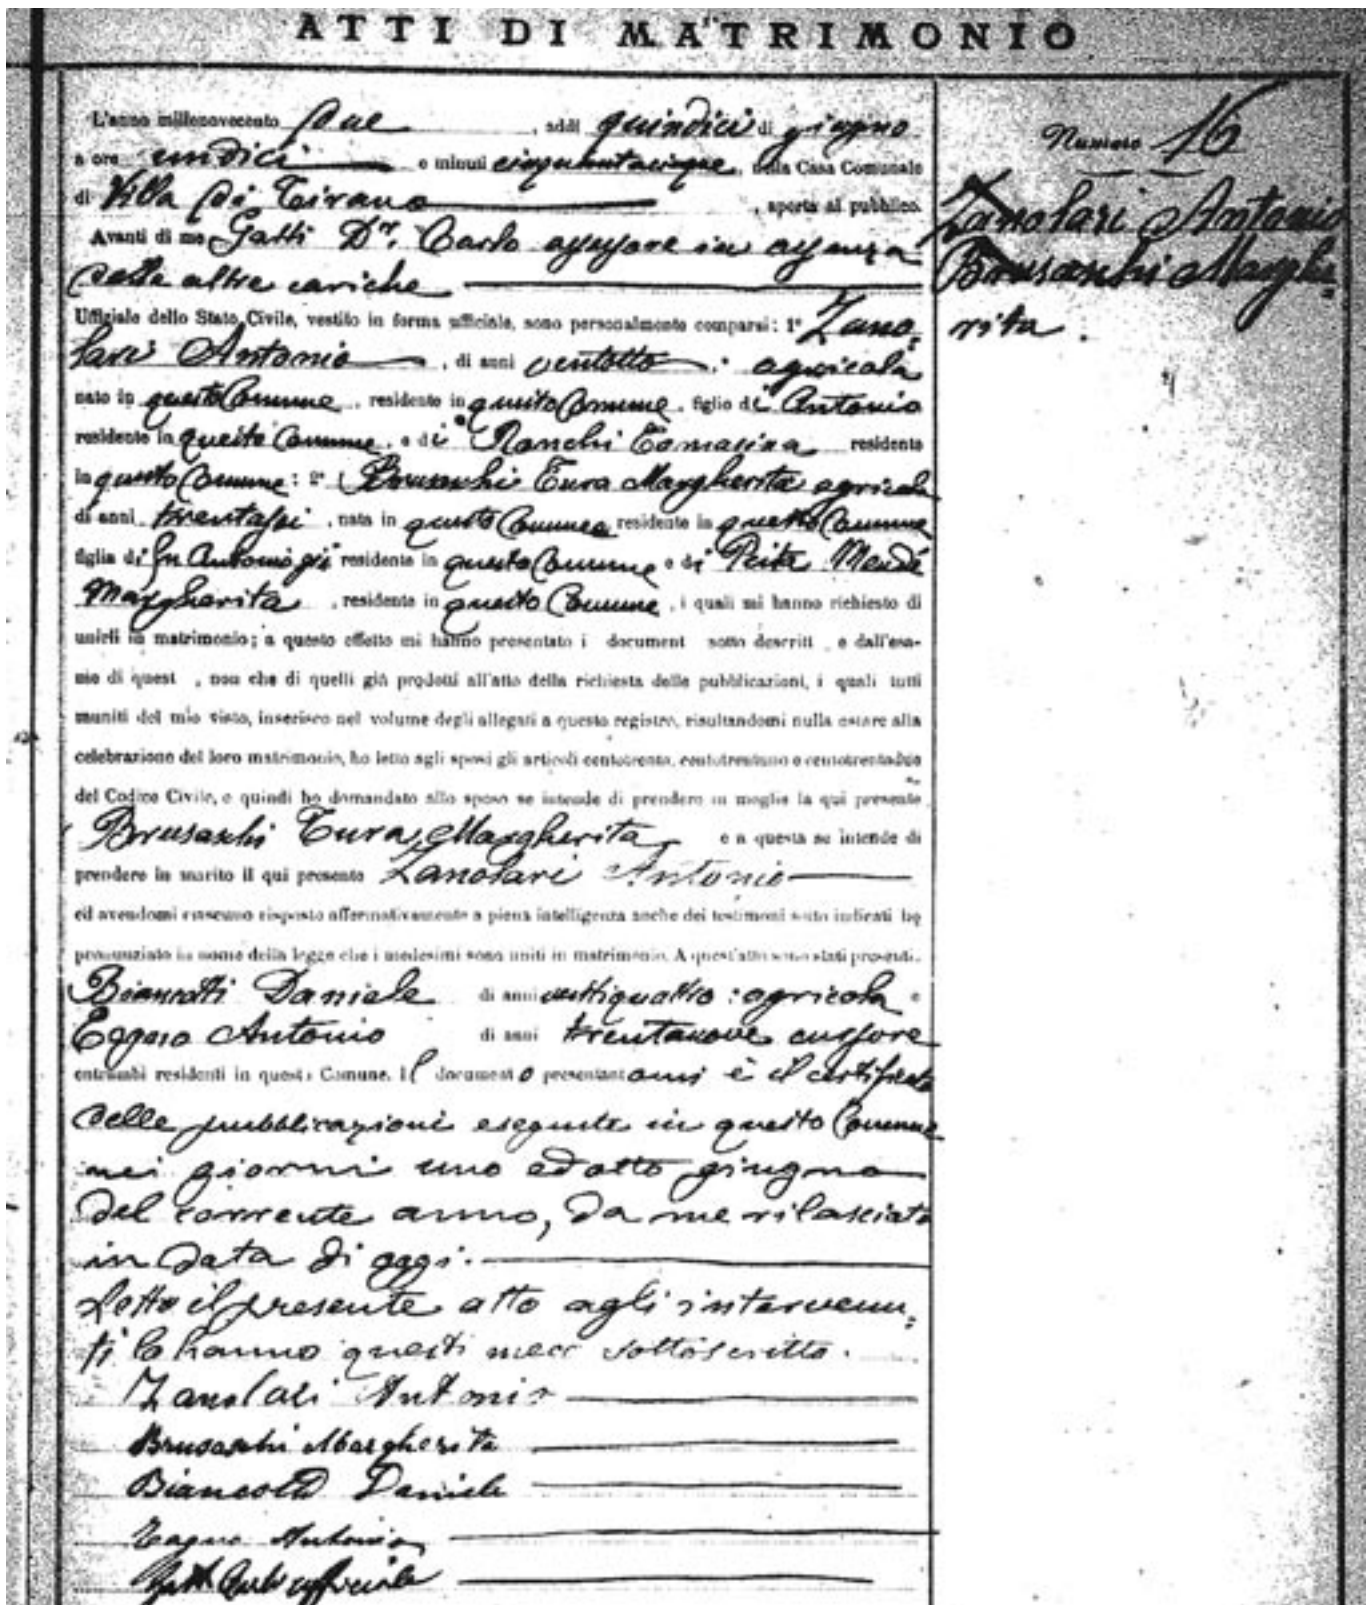 ATTI DI MATRIMONIO
L'anno millenovecento due, addì quindici di giugno
a ore undici e minuti cinquantacinque, nella Casa Comunale
di Villa di Tirano, aperta al pubblico.
Avanti di me Gatti Dr. Carlo assessore in assenza
delle altre cariche
Uffiziale dello Stato Civile, vestito in forma ufficiale, sono personalmente comparsi: 1° Zano=
lari Antonio, di anni ventotto: agricola
nato in questo Comune, residente in questo Comune, figlio di Antonio
residente in questo Comune, e di Ronchi Tomasina residente
in questo Comune: 2° Brusaschi Tura Margherita agricola
di anni trentasei, nata in questo Comune residente in questo Comune
figlia di fu Antonio già residente in questo Comune e di
Margherita, residente in questo Comune, i quali mi hanno richiesto di
unirli in matrimonio; a questo effetto mi hanno presentato i document sotto descritt , e dall'esa-
me di quest , non che di quelli già prodotti all'atto della richiesta delle pubblicazioni, i quali tutti
muniti del mio visto, inserisco nel volume degli allegati a questo registro, risultandomi nulla ostare alla
celebrazione del loro matrimonio, ho letto agli sposi gli articoli centotrenta, centotrentuno e centotrentadue
del Codice Civile, e quindi ho domandato allo sposo se intende di prendere in moglie la qui presente
Brusaschi Tura Margherita e a questa se intende di
prendere in marito il qui presente Zanolari Antonio
ed avendomi ciascuno risposto affermativamente a piena intelligenza anche dei testimoni sotto indicati ho
pronunziato in nome della legge che i medesimi sono uniti in matrimonio. A quest'atto sono stati presenti.
Biancotti Daniele di anni ventiquattro: agricola e
Antonio di anni trentanove cursore
entrambi residenti in questo Comune. Il documento presentatomi è il certificato
delle pubblicazioni eseguite in questo Comune
nei giorni uno ed otto giugno
del corrente anno, da me rilasciato
in data di oggi.
Letto il presente atto agli intervenu=
ti lo hanno questi meco sottoscritto.
Zanolari Antonio
Brusaschi Margherita
Biancotti Daniele
Antonio
Gatti Carlo ufficiale
Numero 16
Zanolari Antonio
Brusaschi Marghe=
rita.